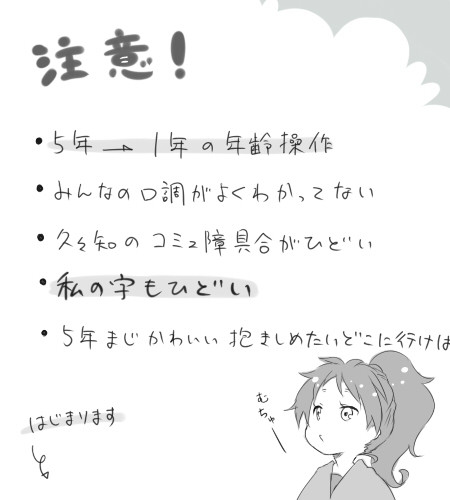 注意!
・5年→1年の年齢操作
・みんなの口調がよくわかってない
・久々知のコミュ障具合がひどい
・私の字もひどい
・5年まじかわいい 抱きしめたいどこに行けは
むちゅ
はじまります